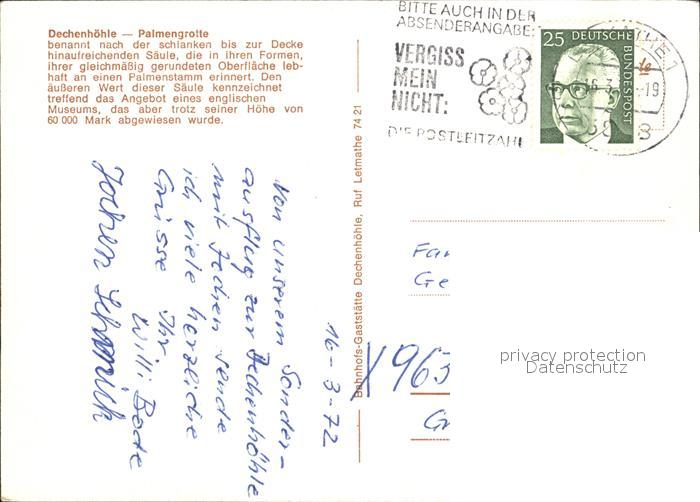 Dechenhöhle — Palmengrotte
benannt nach der schlanken bis zur Decke
hinaufreichenden Säule, die in ihren Formen,
ihrer gleichmäßig gerundeten Oberfläche leb-
haft an einen Palmenstamm erinnert. Den
äußeren Wert dieser Säule kennzeichnet
treffend das Angebot eines englischen
Museums, das aber trotz seiner Höhe von
60 000 Mark abgewiesen wurde.
16-3-72
Von unserem Sonder-
ausflug zur Dechenhöhle
mit Jochen sende
ich viele herzliche
Grüsse Ihr
Willi Bode
Jochen
Bahnhofs-Gaststätte Dechenhöhle, Ruf Letmathe 74 21
BITTE AUCH IN DER
ABSENDERANGABE:
VERGISS
MEIN
NICHT:
DIE POSTLEITZAHL
25 DEUTSCHE
BUNDESPOST
Fa
Ge
963
G
privacy protection
Datenschutz